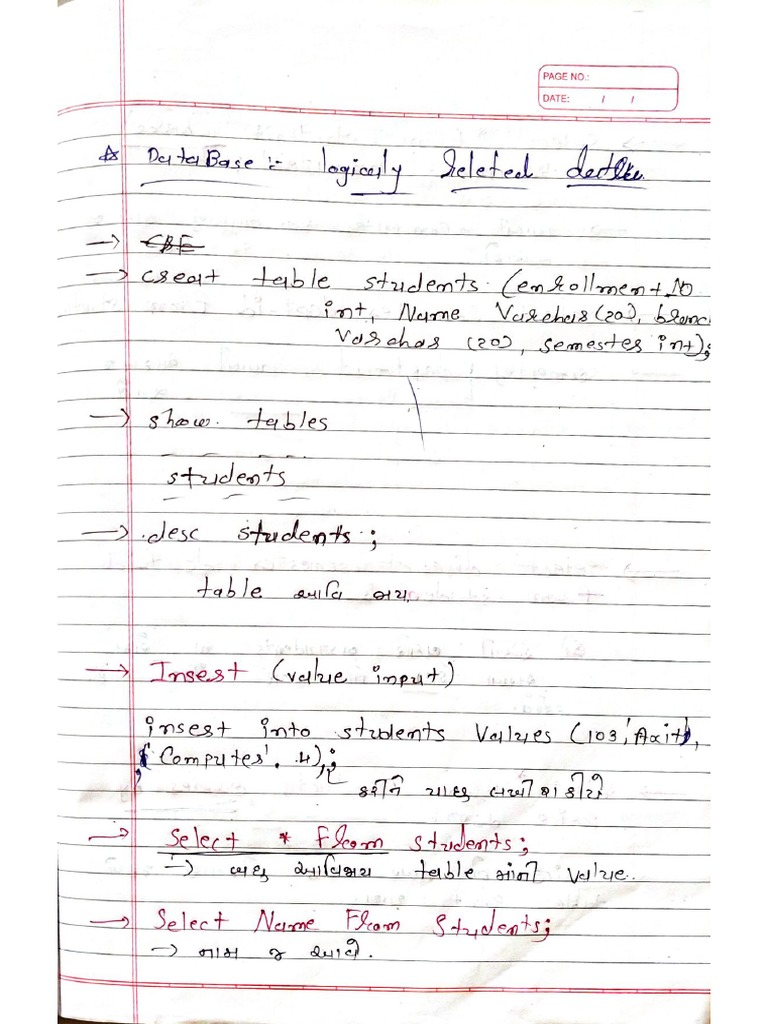 PAGE NO.:
DATE: / /
☆ DataBase :- logicaly Releted
→ create table students (enrollment NO
int, Name Varchar(20), branc
Varchar (20), semester int);
→ show tables
students
→ desc students ;
table આવિ જાય.
→ Insert (value input)
insert into students values (103, 'Axit',
'Computer', 4);
કરીને પાછુ લખી શકીયે
→ Select * From students;
→ બધુ આવિજાય table માંની value.
→ Select Name From Students;
→ નામ જ આવે.